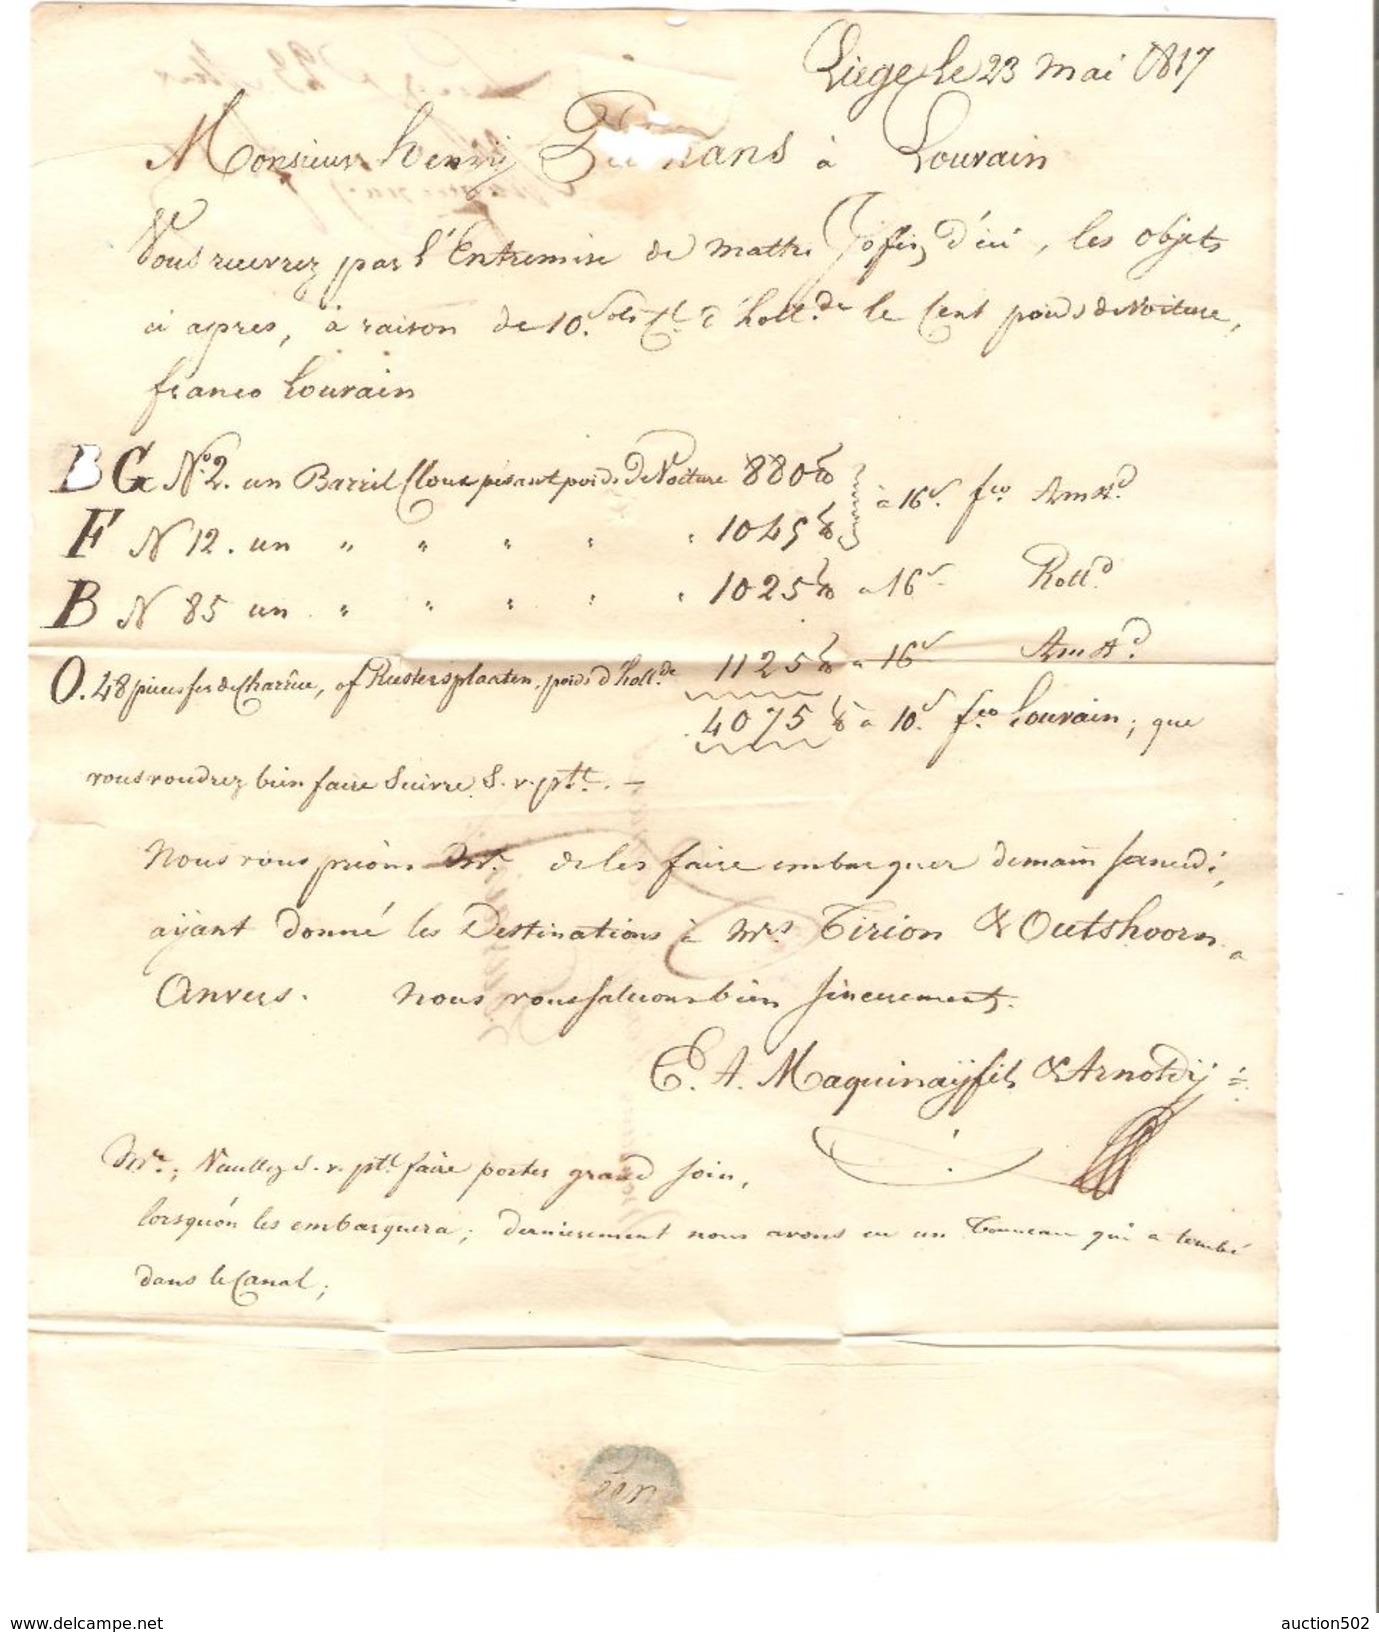 Liege Le 23 Mai 1817
Monsieur henry ans à Louvain
Vous recevrez par l'Entremise de Mathr. d'ici, les objets
ci apres, à raison de 10. sols d'holl.de le Cent poids de Voiture,
franco Louvain
B G No. 2. un Barril Cloux pesant poids de Voiture 880 lb } à 16 s. f.co Amst.d
F N 12. un " " " " " 1045 lb
B N 85 un " " " " " 1025 lb a 16 s. Rott.d
O. 48 pieces fer de Charrue, of Rustersplaaten, poids d'holl.de 1125 lb a 16 s. Amst.d
4075 lb a 10 s. f.co Louvain; que
vous voudrez bien faire Suivre S. v. ptt. —
Nous vous prions Mr. de les faire embarquer demain samedi,
ayant donné les Destinations à Mrs Tirion & Outshoorn a
Anvers. Nous vous saluons bien sincerement.
E. A. Maquinay fils & Arnoldy
Mr., Veuillez S. v. ptt faire porter grand soin,
lorsqu'on les embarquera; dernierement nous avons eu un Tonneau qui a tombé
dans le Canal;
www.delcampe.net
auction502